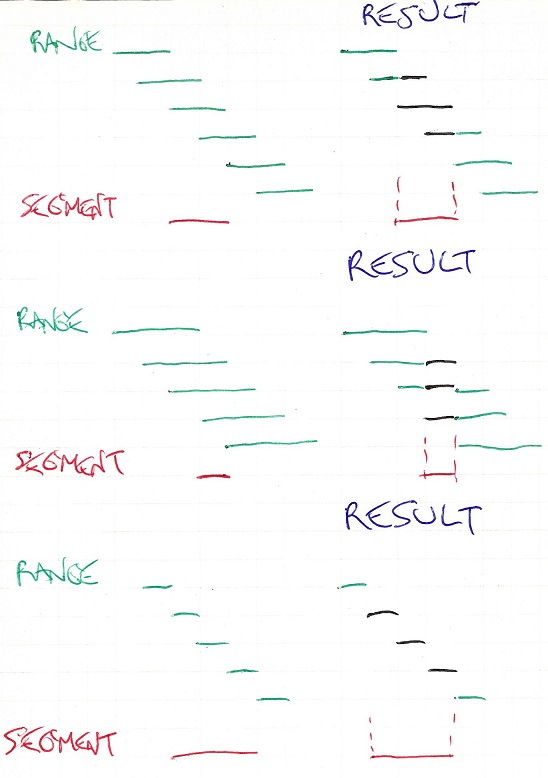 RESULT
RANGE
SEGMENT
RESULT
RANGE
SEGMENT
RESULT
RANGE
SEGMENT